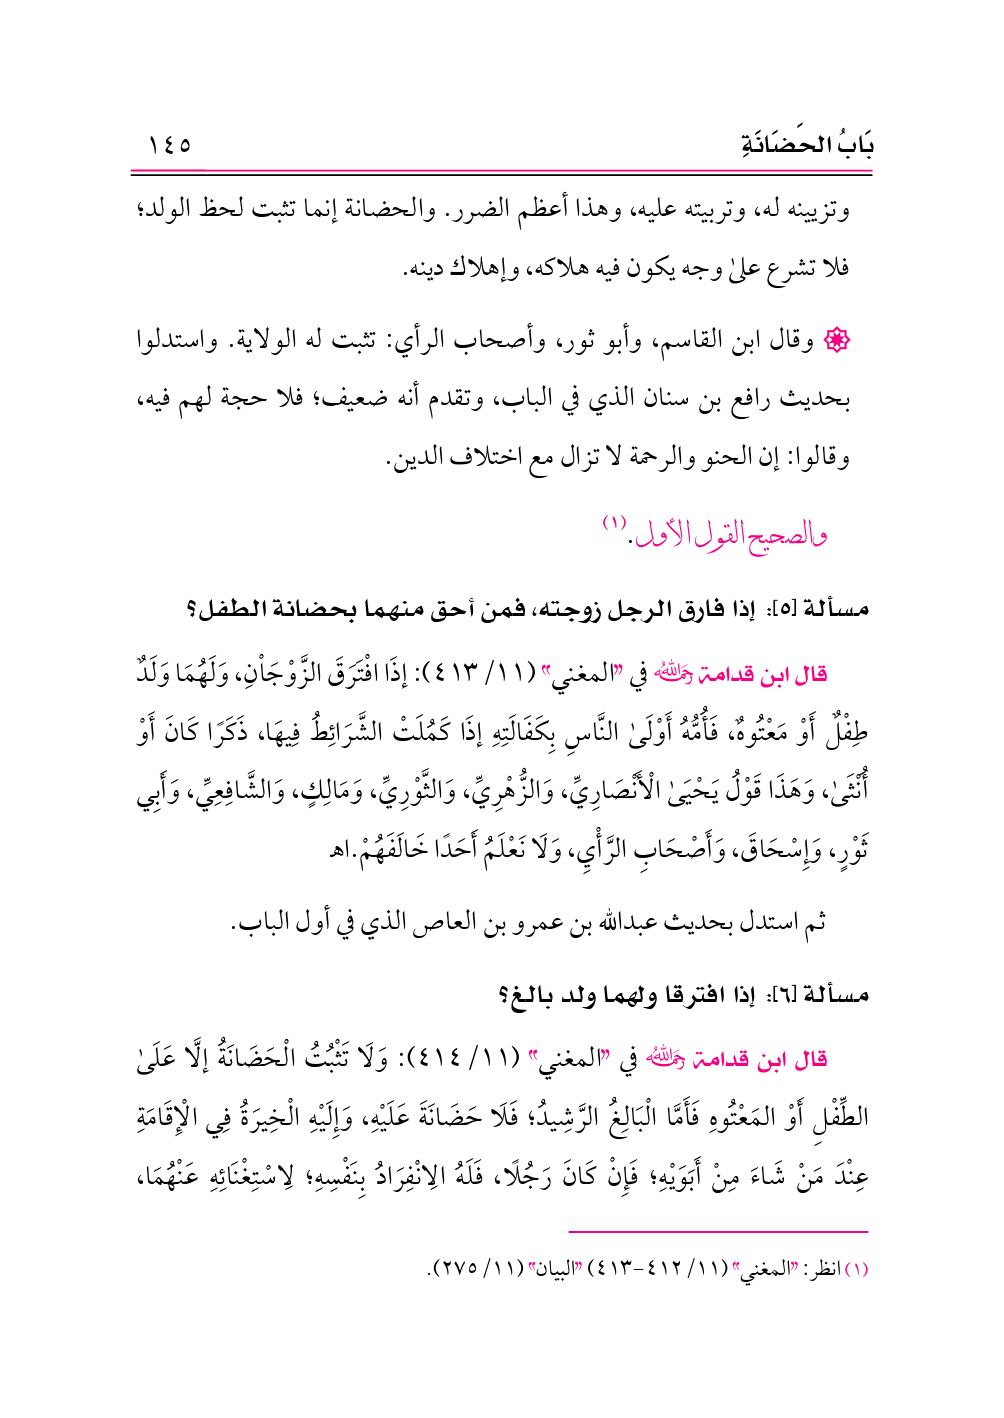 بَابُ الحَضَانَةِ ١٤٥
وتزيينه له، وتربيته عليه، وهذا أعظم الضرر. والحضانة إنما تثبت لحظ الولد؛
فلا تشرع علىٰ وجه يكون فيه هلاكه، وإهلاك دينه.
وقال ابن القاسم، وأبو ثور، وأصحاب الرأي: تثبت له الولاية. واستدلوا
بحديث رافع بن سنان الذي في الباب، وتقدم أنه ضعيف؛ فلا حجة لهم فيه،
وقالوا: إن الحنو والرحمة لا تزال مع اختلاف الدين.
والصحيح القول الأول.(١)
مسألة [٥]: إذا فارق الرجل زوجته، فمن أحق منهما بحضانة الطفل؟
قال ابن قدامة رَحِمَهُ اللهُ في "المغني" (١١/ ٤١٣): إذَا افْتَرَقَ الزَّوْجَاْنِ، وَلَهُمَا وَلَدٌ
طِفْلٌ أَوْ مَعْتُوهٌ، فَأُمُّهُ أَوْلَىٰ النَّاسِ بِكَفَالَتِهِ إذَا كَمُلَتْ الشَّرَائِطُ فِيهَا، ذَكَرًا كَانَ أَوْ
أُنْثَىٰ، وَهَذَا قَوْلُ يَحْيَىٰ الْأَنْصَارِيِّ، وَالزُّهْرِيِّ، وَالثَّوْرِيِّ، وَمَالِكٍ، وَالشَّافِعِيِّ، وَأَبِي
ثَوْرٍ، وَإِسْحَاقَ، وَأَصْحَابِ الرَّأْيِ، وَلَا نَعْلَمُ أَحَدًا خَالَفَهُمْ.اهـ
ثم استدل بحديث عبدالله بن عمرو بن العاص الذي في أول الباب.
مسألة [٦]: إذا افترقا ولهما ولد بالغ؟
قال ابن قدامة رَحِمَهُ اللهُ في "المغني" (١١/ ٤١٤): وَلَا تَثْبُتُ الْحَضَانَةُ إلَّا عَلَىٰ
الطِّفْلِ أَوْ المَعْتُوهِ فَأَمَّا الْبَالِغُ الرَّشِيدُ؛ فَلَا حَضَانَةَ عَلَيْهِ، وَإِلَيْهِ الْخِيرَةُ فِي الْإِقَامَةِ
عِنْدَ مَنْ شَاءَ مِنْ أَبَوَيْهِ؛ فَإِنْ كَانَ رَجُلًا، فَلَهُ الِانْفِرَادُ بِنَفْسِهِ؛ لِاسْتِغْنَائِهِ عَنْهُمَا،
(١) انظر: "المغني" (١١/ ٤١٢-٤١٣) "البيان" (١١/ ٢٧٥).